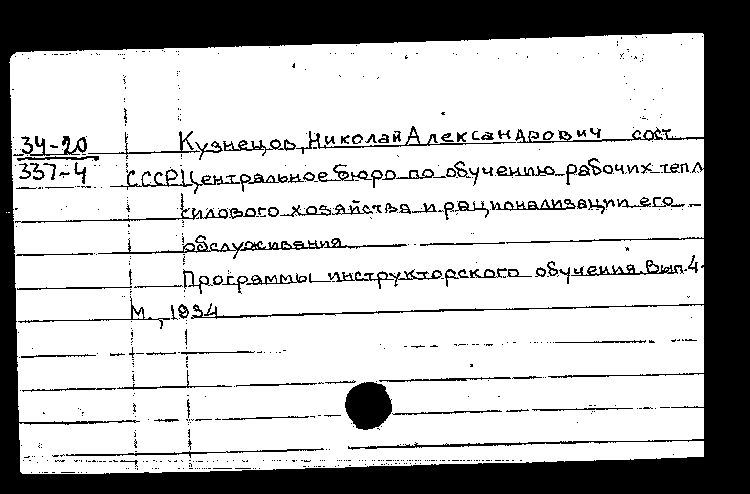 34-20 Кузнецов, Николай Александрович сост.
337-4 СССР Центральное бюро по обучению рабочих тепл
силового хозяйства и рационализации его
обслуживания
Программы инструкторского обучения. Вып. 4.
М., 1934